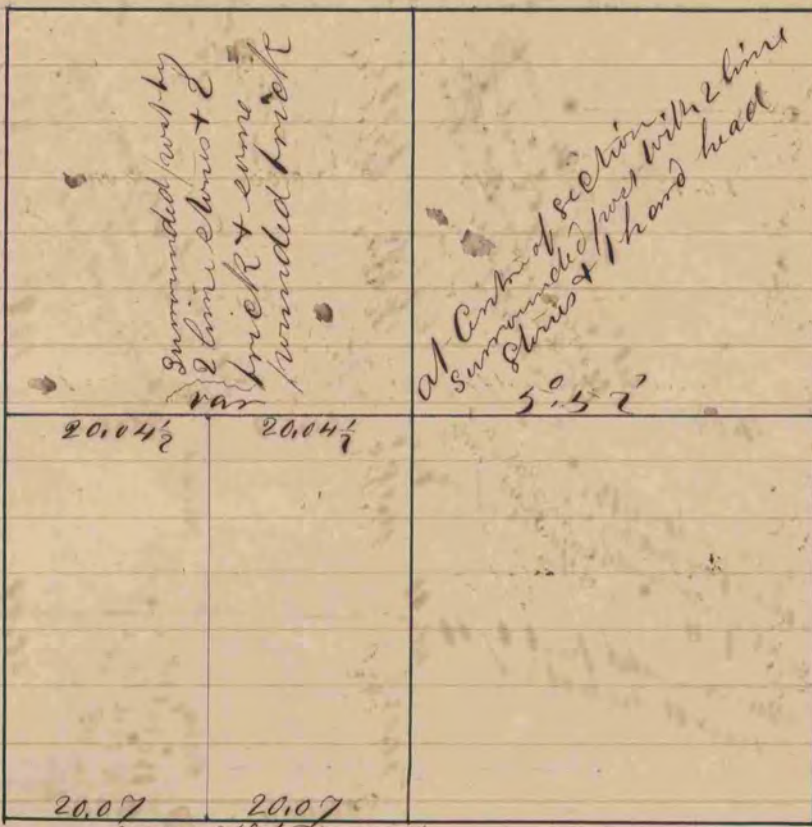 Surrounded post by
2 lime stones + 2
brick + some
pounded brick
var
at Centre of section
surrounded post with 2 lime
stones + 1 hard head
5° 52'
20.04½ 20.04½
20.07 20.07